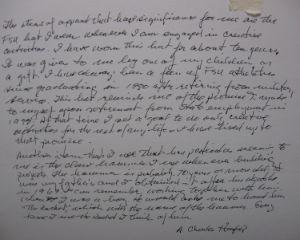 The items of apparel that has significance for me are the
FSU hat I wear whenever I am engaged in creative
activities. I have worn this hat for about ten years.
It was given to me by one of my children as
a gift. I have always been a fan of FSU athletics
since graduating in 1950 after retiring from military
service. This hat reminds me of the promise I made
to myself upon retirement from State employment in
1979. At that time I set a goal to do only creative
activities for the rest of my life. I have lived up to
that promise.
Another item that I use that has particular meaning to
me is the old hammer I use when I am building
projects. The hammer is perhaps 70 years or more old. It
was my father's and I obtained it after his death
in 1969. I can remember working together with him
when I was a boy. It actually looks
the which with the
time I use the I think of him.
A. Charles